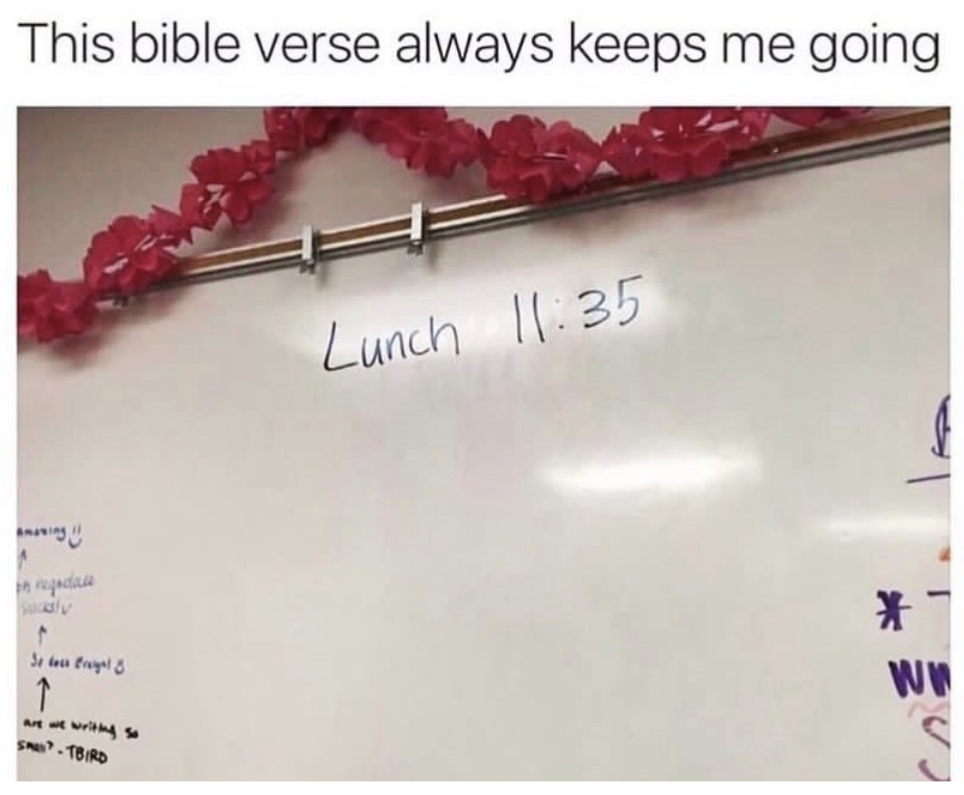 This bible verse always keeps me going
Lunch 11:35
Amazing !!
↑
↑
So does
↑
are we writing so
small? - TBIRD
*